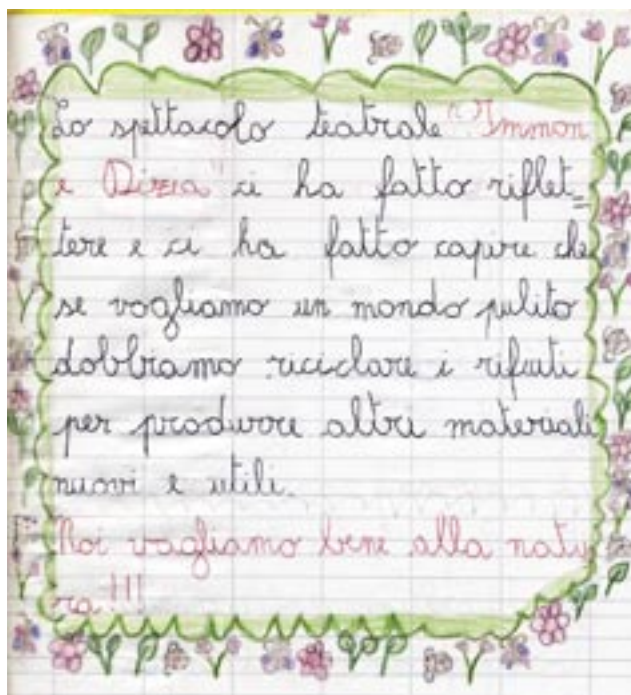 Lo spettacolo teatrale "Immon
e Dizia" ci ha fatto riflet=
tere e ci ha fatto capire che
se vogliamo un mondo pulito
dobbiamo riciclare i rifiuti
per produrre altri materiali
nuovi e utili.
Noi vogliamo bene alla natu
ra!!!